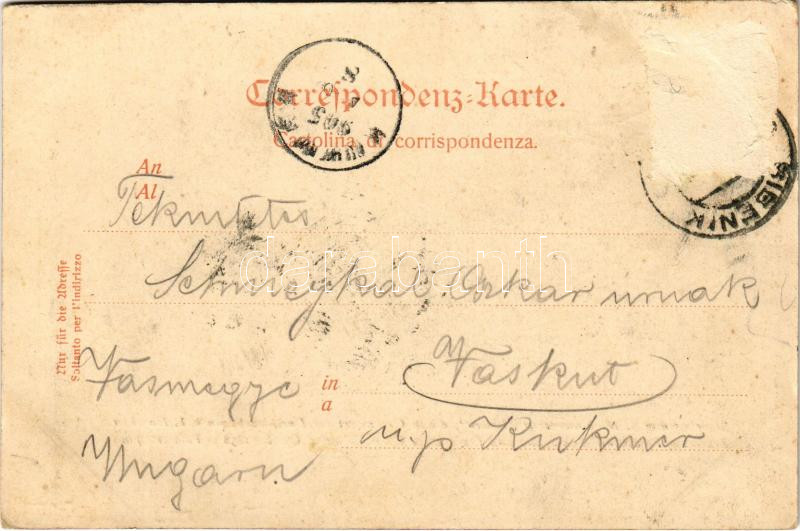 Correspondenz-Karte.
Cartolina di corrispondenza.
An
Al
Tekintetes
Oskar urnak
Vaskut
in
a
Vasmegye
u.p Kukmer
Ungarn
Nur für die Adresse
Soltanto per l'indirizzo
905
SIBENIK
darabanth